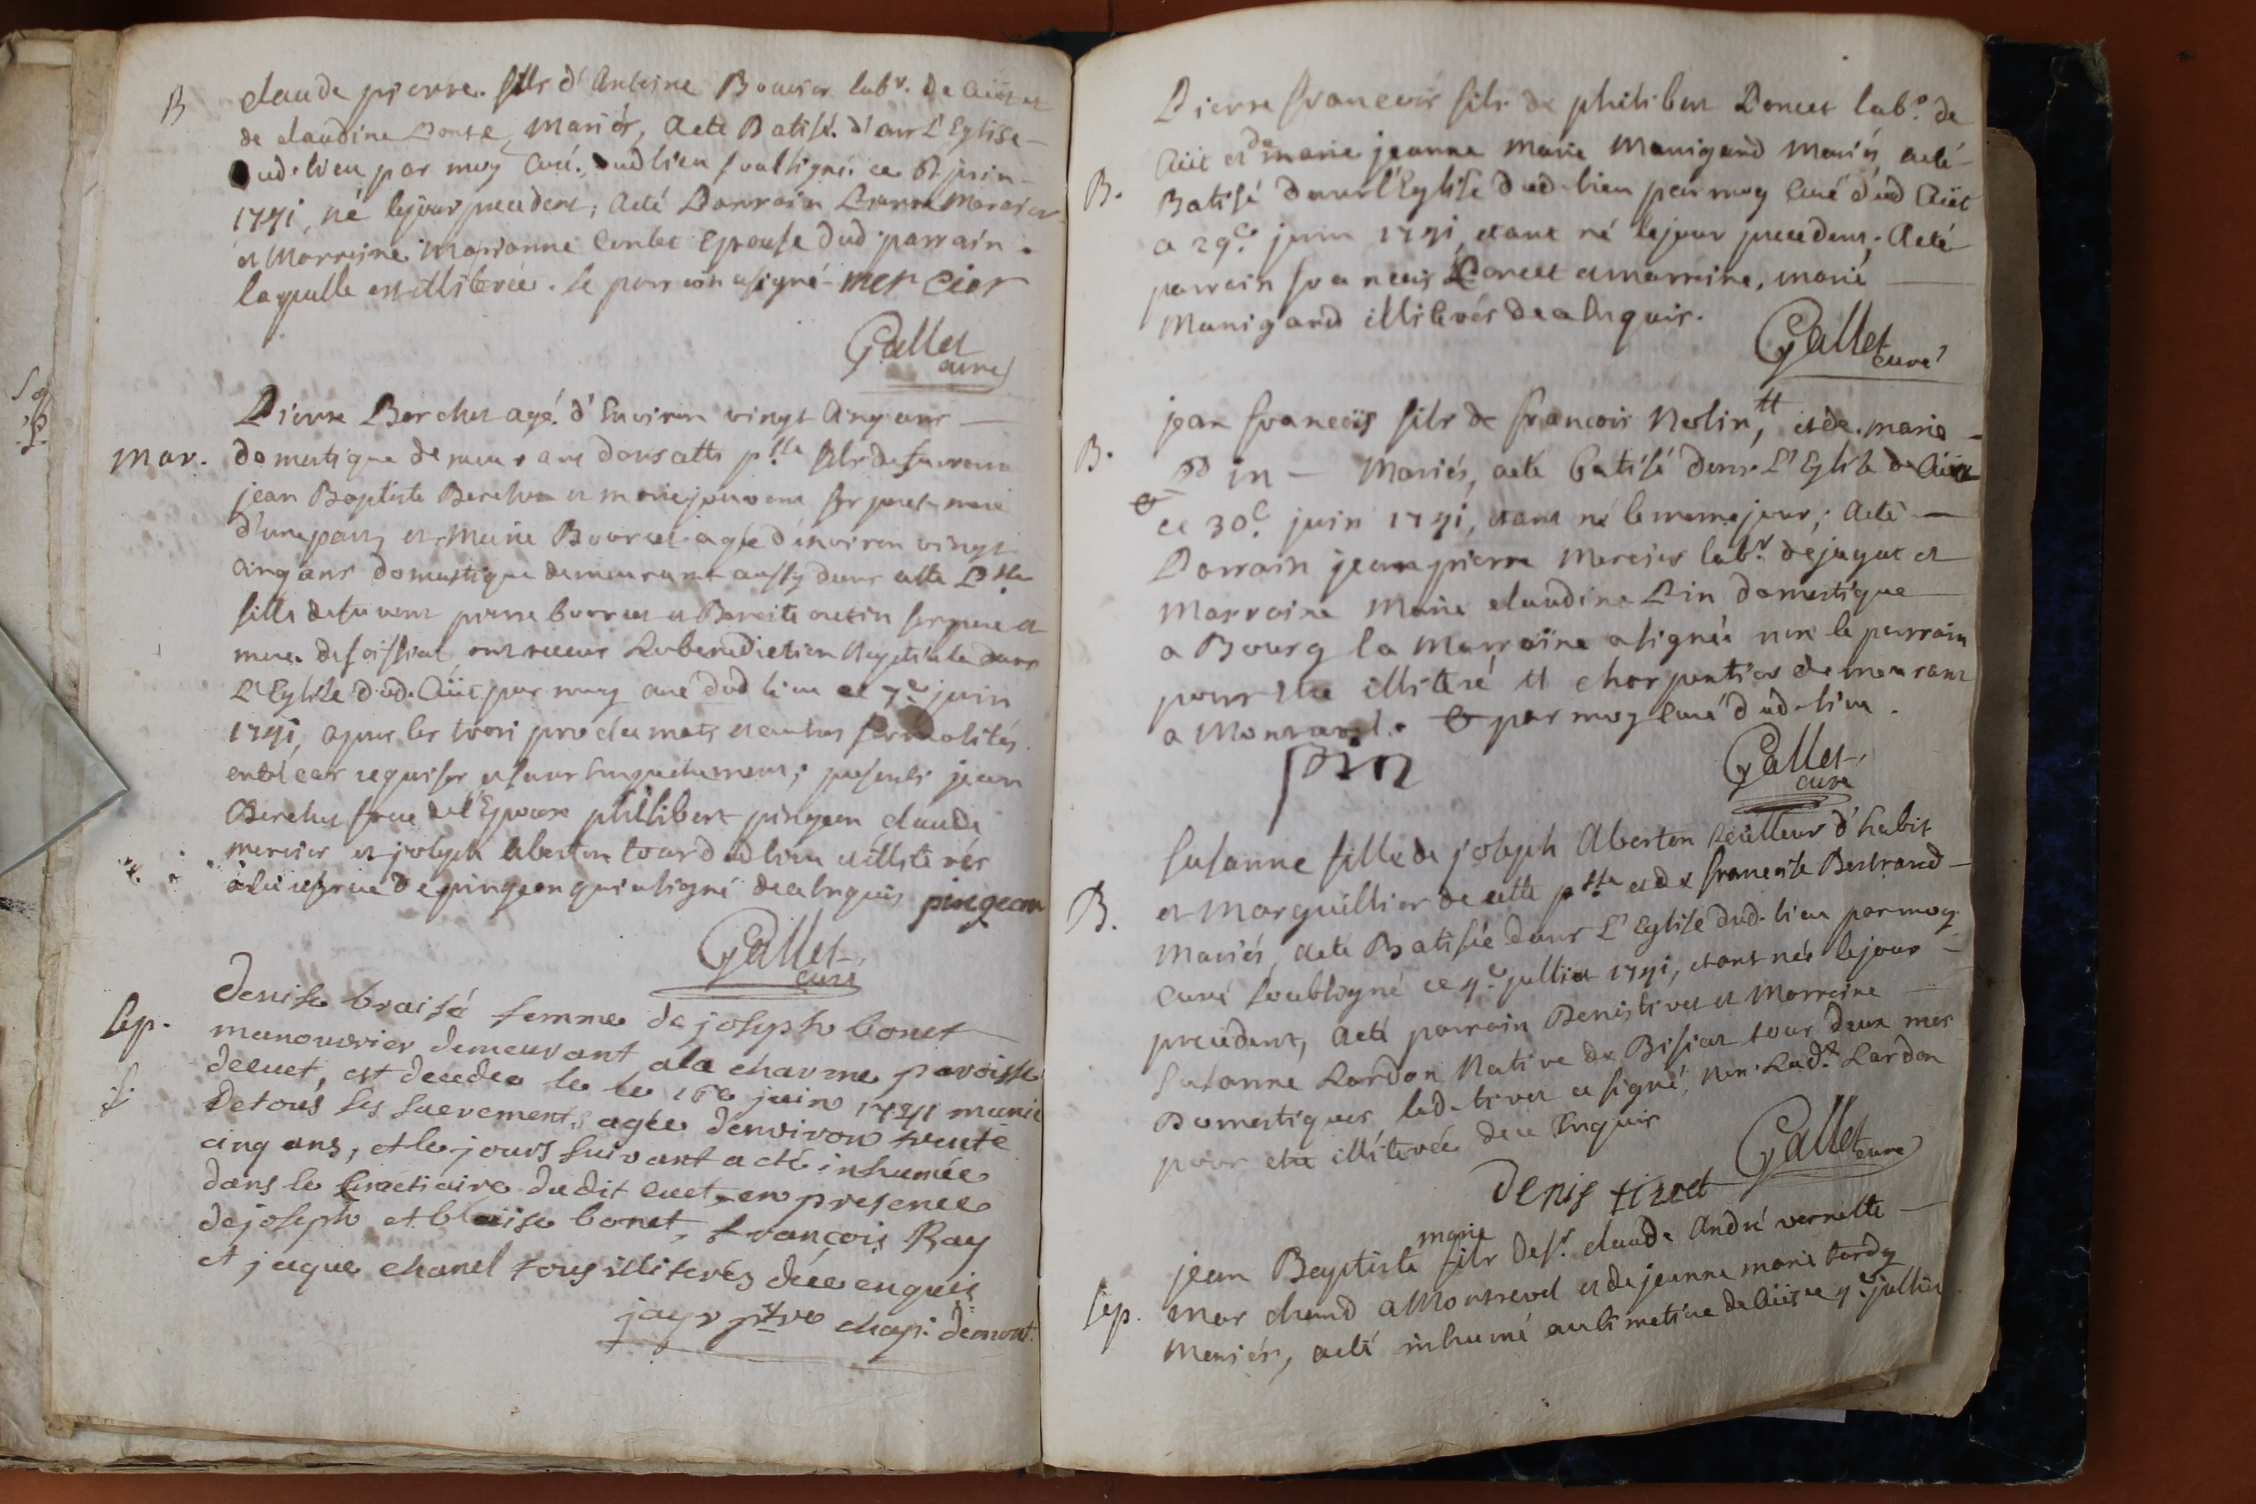 B
claude pierre. fils d'Antoine Bouvier labr. de Cüet et
de claudine Ponse, Mariés, aeté Batisé. dans L'Eglise
dud. lieu par moy Curé. dud lieu soussigné. ce 6e juin
1741, né lejour precedent; aeté Parrain Pierre Mercier
et Marraine Marianne Epouse dud. parrain.
laquelle est illiterée. le parrain asigné mercier
Gallet
curé
Mar.
Pierre Berchet agé d'Environ vingt Cinq ans
domestique demeurant dans cette psse fils de furent
jean Baptiste Berchet et marie jouvent ses pere et mere
d'unepart, et Marie Bourcet agée d'environ vingt
cinq ans domestique demeurant aussy dans cette Psse
fille defurent pierre bourcet et Benoite ses pere et
mere de foissiat, ont receus La benediction Nuptiale dans
L'Eglise dud. Cüet par moy curé dud lieu ce 7e juin
1741, apres les trois proclamats et autres formalités
entel cas requises et sans Empechement; presents jean
Berchet frere de l'Epoux philibert pingeon claude
mercier et joseph Alberton tous dudlieu illiterés
alareserve de pingeon qui asigné dece Enquis pingeon
Gallet
curé
Sep.
Denise braisé femme de joseph bonet
manouvrier demeurant ala charme paroisse
decuet, est decedée le le 16e juin 1741 munie
detous ses sacrements, agée denviron trente
cinq ans, et le jours suivant a eté inhumée
dans le Cimetiaire dudit cuet, en presence
dejoseph et blaise bonet, françois Ray
et jaque chanel tous illiterés dece enquis
jayr ptre chap: demont.
B.
Pierre francois fils de philibert Poncet labr. de
Cüit et de marie jeanne Marie Manigand Mariés aeté
Batisé dans l'Eglise dud. lieu par moy Curé dud Cüit
a 29e. juin 1741, etant né lejour precedent; aeté
parrain francois Poncet et marraine, marie
Manigand illiterés de ce Enquis.
Gallet
curé
B.
jean francois fils de francois Neslin, tt et de. marie
pin - Mariés, aeté batisé dans L'Eglise de Cüit
ce 30e juin 1741, etant né le meme jour; aeté
Parrain jean pierre Mercier labr. dejayat et
Marraine Marie claudine Pin domestique
a Bourg la Marraine asignée non le parrain
pour etre illiteré tt charpentier demeurant
a Montravel. par moy Curé dud. lieu.
pin
Gallet
curé
B.
Susanne fille de joseph Alberton tailleur d'habit
et Marguillier de cette psse et de francoise Bertrand
Mariés, aeté Batisée dans L'Eglise dud. lieu par moy
Curé soubsigné ce 4e juillet 1741, etant née lejour
precedent, aeté parrain Denis tivet et Marraine
Susanne Lardon Native de Bisiat tous deux mes
Domestiques, led. tivet a signé, non Lade. Lardon
pour etre illiterée dece Enquis
denis tivet
Gallet
curé
Sep.
jean Baptiste marie fils de sr. claude André vernette
marchand a Montrevel et de jeanne marie tardy
Mariés, aeté inhumé au simetiere de Cüit ce 4e juillet